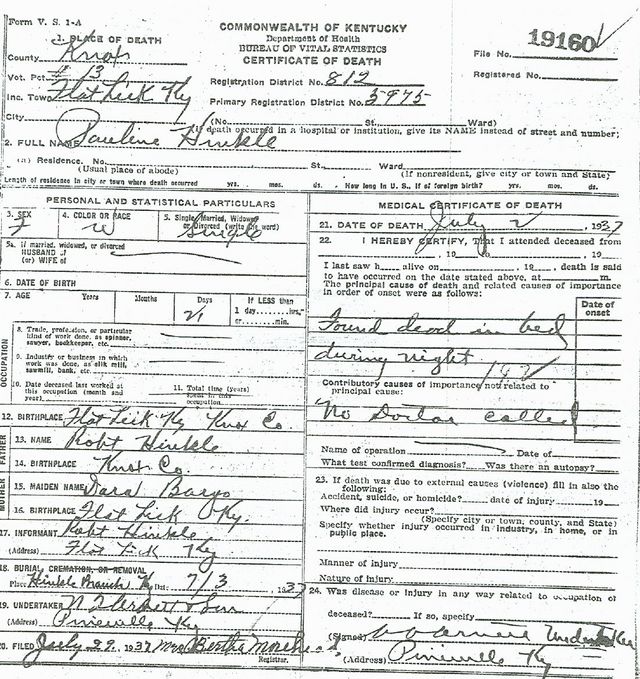 Form V. S. 1-A
COMMONWEALTH OF KENTUCKY
Department of Health
BUREAU OF VITAL STATISTICS
CERTIFICATE OF DEATH
File No. 19160
Registered No.
1. PLACE OF DEATH
County Knox
Vot. Pct. # 13
Inc. Town Flat Lick Ky
City
Registration District No. 812
Primary Registration District No. 5975
(No. St. Ward)
(If death occurred in a hospital or institution, give its NAME instead of street and number;
2. FULL NAME Pauline Hinkle
(a) Residence. No. St. Ward
(Usual place of abode) (If nonresident, give city or town and State)
Length of residence in city or town where death occurred yrs. mos. ds. How long in U. S., if of foreign birth? yrs. mos. ds.
PERSONAL AND STATISTICAL PARTICULARS
3. SEX F
4. COLOR OR RACE W
5. Single, Married, Widowed or Divorced (write the word) Single
5a. If married, widowed, or divorced
HUSBAND of
(or) WIFE of
6. DATE OF BIRTH
7. AGE Years Months Days 21 If LESS than
1 day hrs.,
or min.
OCCUPATION
8. Trade, profession, or particular
kind of work done, as spinner,
sawyer, bookkeeper, etc.
9. Industry or business in which
work was done, as silk mill,
sawmill, bank, etc.
10. Date deceased last worked at
this occupation (month and
year)
11. Total time (years)
spent in this
occupation
12. BIRTHPLACE Flat Lick Ky Knox Co.
FATHER
13. NAME Robt Hinkle
14. BIRTHPLACE Knox Co.
MOTHER
15. MAIDEN NAME Bargo
16. BIRTHPLACE Flat Lick Ky.
17. INFORMANT Robt Hinkle
(Address) Flat Lick Ky
18. BURIAL, CREMATION, OR REMOVAL
Place Hinkle Branch Ky Date 7/3 1937
19. UNDERTAKER
(Address) Pineville Ky
20. FILED July 29, 1937 Mrs Bertha
Registrar.
MEDICAL CERTIFICATE OF DEATH
21. DATE OF DEATH July 2, 1937
22. I HEREBY CERTIFY, That I attended deceased from
, 19 , 19
I last saw h alive on , 19 , death is said
to have occurred on the date stated above, at m.
The principal cause of death and related causes of importance
in order of onset were as follows:
Date of
onset
Found dead in bed
during night
Contributory causes of importance not related to
principal cause:
No Doctor called
Name of operation Date of
What test confirmed diagnosis? Was there an autopsy?
23. If death was due to external causes (violence) fill in also the
following:
Accident, suicide, or homicide? date of injury 19
Where did injury occur?
(Specify city or town, county, and State)
Specify whether injury occurred in industry, in home, or in
public place.
Manner of injury
Nature of injury
24. Was disease or injury in any way related to occupation of
deceased? If so, specify
(Signed) Undertaker
(Address) Pineville Ky